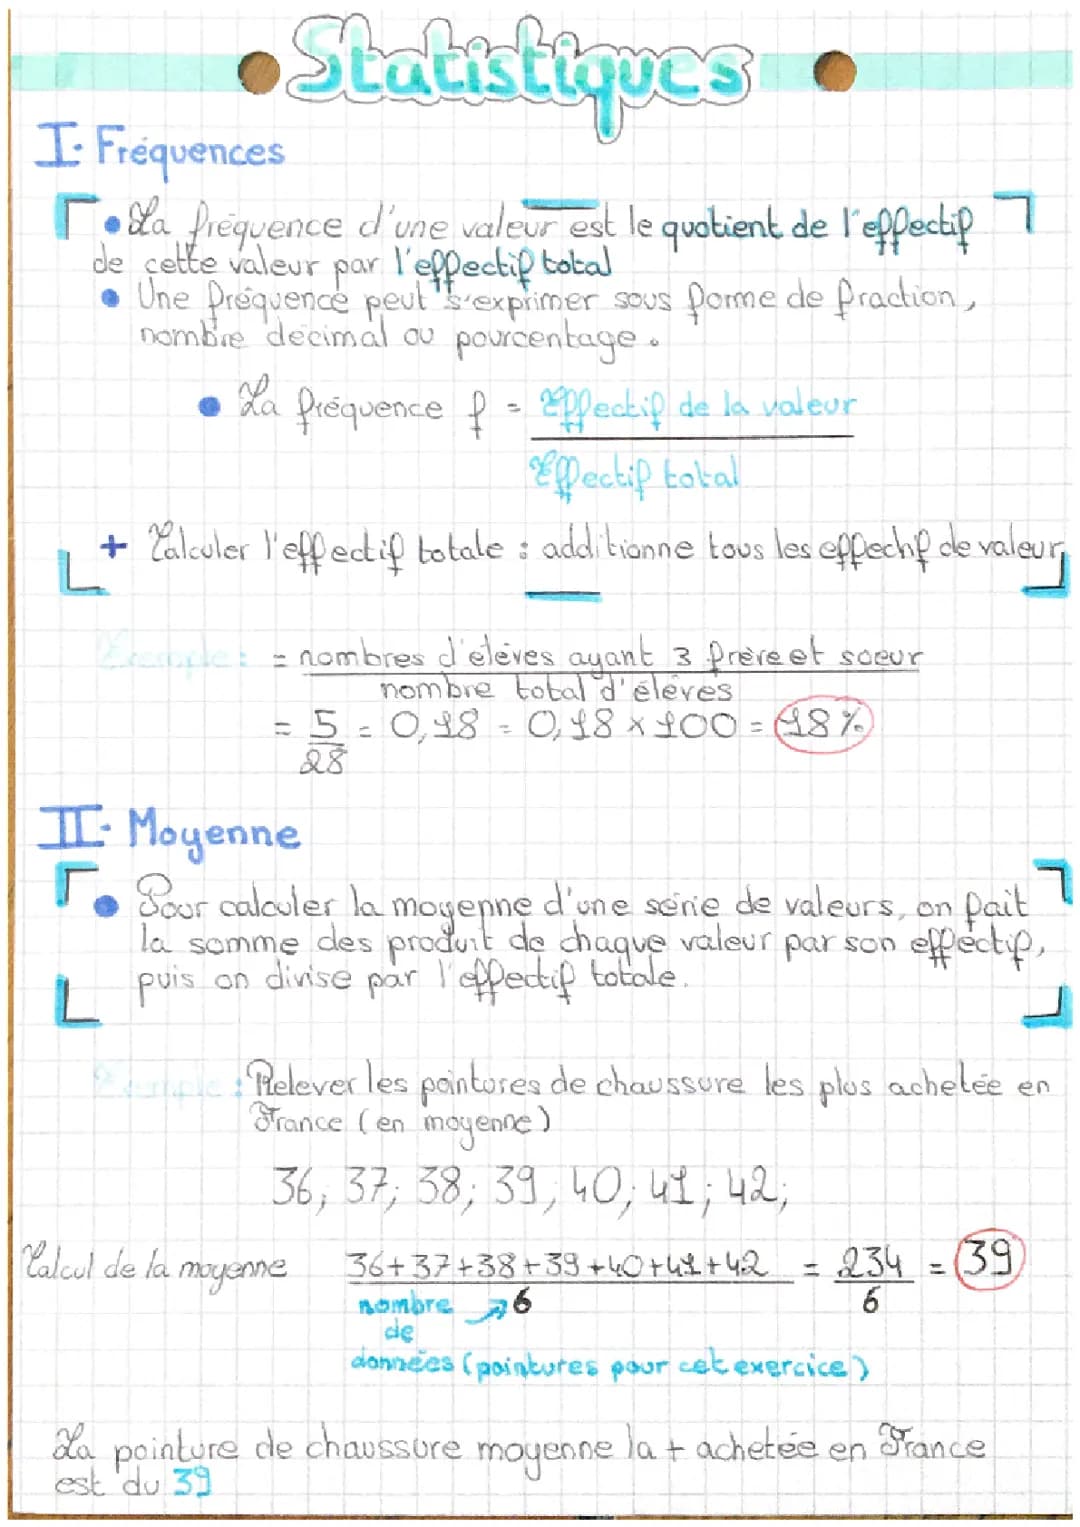 Statistiques
I. Fréquences
• La fréquence d'une valeur est le quotient de l'effectif
de cette valeur par l'effectif total
• Une fréquence peut s'exprimer sous forme de fraction,
nombre décimal ou pourcentage.
• La fréquence f = Effectif de la valeur
Effectif total
+ Calculer l'effectif totale : additionne tous les effectif de valeur
Exemple : = nombres d'élèves ayant 3 frère et soeur
nombre total d'élèves
= 5 = 0,18 = 0,18 x 100 = 18%
28
II. Moyenne
• Pour calculer la moyenne d'une série de valeurs, on fait
la somme des produit de chaque valeur par son effectif,
puis on divise par l'effectif totale.
Exemple : Relever les pointures de chaussure les plus achetée en
France (en moyenne)
36; 37; 38; 39, 40; 41; 42;
Calcul de la moyenne 36+37+38+39+40+41+42 = 234 = 39
nombre → 6 6
de
données (pointures pour cet exercice)
La pointure de chaussure moyenne la + achetée en France
est du 39